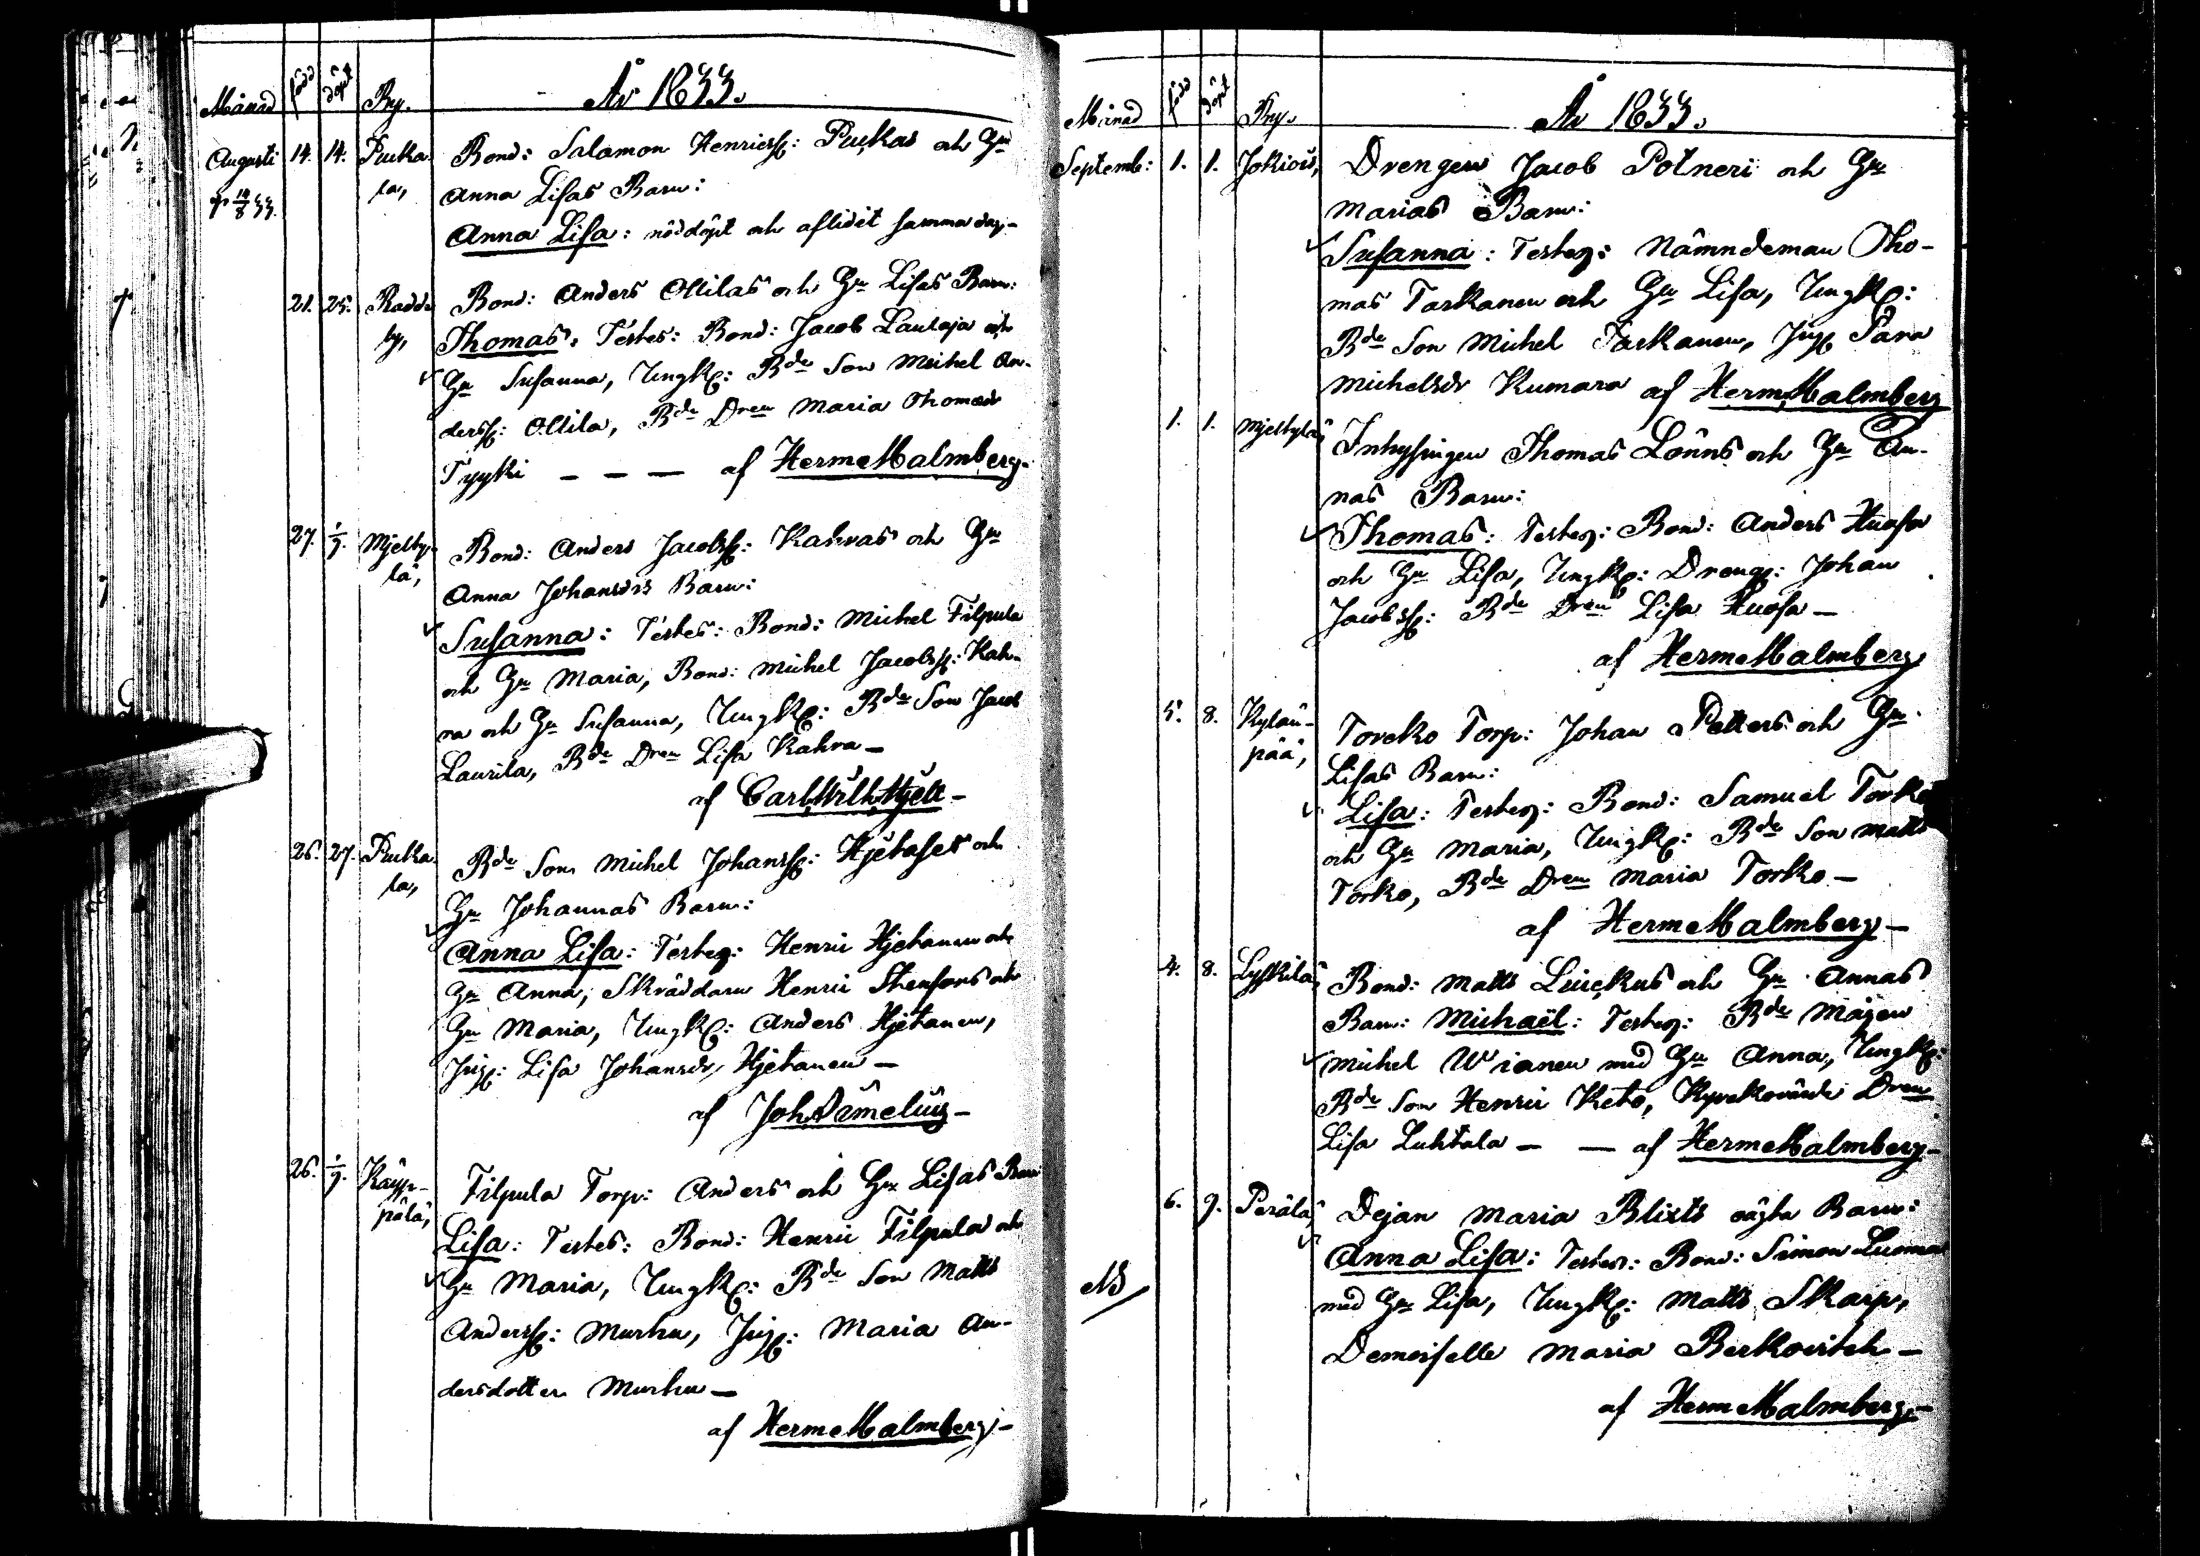 År 1833.
Månad född döpt By.
Augusti 14. 14. Puckala, Bond: Salamon Henricsß: Puckas och Hu
† 14/8 33. Anna Lisas Barn:
Anna Lisa: nöddöpt och aflidit samma dag,-
21. 25. Raddby, Bond: Anders Ollilas och Hu Lisas Barn:
Thomas: Testes: Bond: Jacob Lautaja och
Hu Susanna, Ungk: Bde Son Michel An-
dersß: Ollila, Bde Dren Maria Thomasdr
Tyyki — — — af Herm Malmberg.
27. 1/9. Mjelbylä, Bond: Anders Jacobsß: Kahras och Hu
Anna Johansdrs Barn:
Susanna: Testes: Bond: Michel Filpula
och Hu Maria, Bond: Michel Jacobsß: Kah-
ra och Hu Susanna, Ungk: Bde Son Jacob
Laurila, Bde Dren Lisa Kahra —
af Carl Wilh Hjelt —
26. 27. Puckala, Bde Son Michel Johansß: Hjetases och
Hu Johannas Barn:
Anna Lisa: Testes: Henric Hjetanen och
Hu Anna, Skräddarn Henric Stensons och
Hu Maria, Ungk: Anders Hjetanen,
Pig: Lisa Johansdr, Hjetanen —
af Joh
26. 1/9. Käyppälä, Filpula Torp: Anders och Hu Lisas Barn
Lisa: Testes: Bond: Henric Filpula och
Hu Maria, Ungk: Bde Son Matts
Andersß: Murhu, Pig: Maria An-
dersdotter Murhu —
af Herm Malmberg —
År 1833.
Månad född döpt By.
Septemb: 1. 1. Jokiois, Drengen Jacob Potneri och Hu
Marias Barn:
Susanna: Testes: Nämndeman Tho-
mas Tarkanen och Hu Lisa, Ungk:
Bde Son Michel Tarkanen, Pig:
Michelsdr Kumara af Herm Malmberg
1. 1. Mjelbylä, Inhysingen Thomas Lönns och Hu An-
nas Barn:
Thomas: Testes: Bond: Anders Huosa
och Hu Lisa, Ungk: Dreng: Johan
Jacobsß: Bde Dren Lisa Huosa —
af Herm Malmberg
5. 8. Kylänpää, Torcko Torp: Johan Petters och Hu
Lisas Barn:
Lisa: Testes: Bond: Samuel Torko
och Hu Maria, Ungk: Bde Son Matts
Torko, Bde Dren Maria Torko —
af Herm Malmberg —
4. 8. Lyskilä, Bond: Matts Luickus och Hu Annas
Barn: Michaël: Testes: Bde Mågen
Michel Wianen med Hu Anna, Ungk:
Bde Son Henric Keto, Kyrckovärds Dren
Lisa Luhtala — — af Herm Malmberg —
6. 9. Perälä, Dejan Maria Blixts oägta Barn:
Anna Lisa: Testes: Bond: Simon Luoma
NB med Hu Lisa, Ungk: Matts Skarp,
Demoiselle Maria Berkovitch —
af Herm Malmberg —